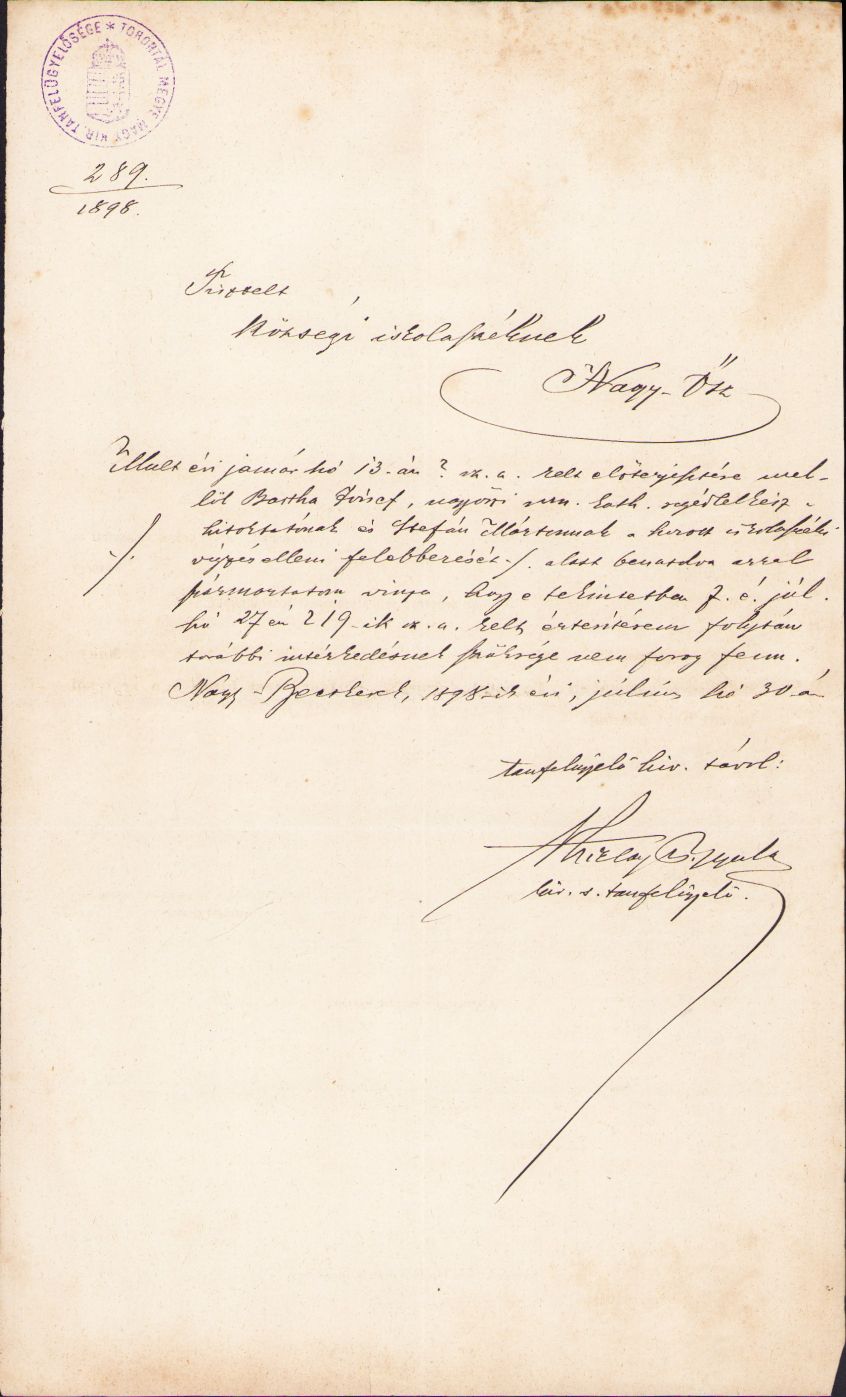 TORONTÁL MEGYE MAGY. KIR. TANFELÜGYELŐSÉGE *
289.
1898.
Tisztelt
Községi iskolaszéknek
Nagy-Ősz
Mult évi január hó 13.-án ? sz. a. kelt előterjesztése mel-
lől Bartha József, nagyőszi róm. kath. segédlelkész
hitoktatónak és Stefán Mártonnak a iskolaszéki
./. végzés elleni felebbezését ./. alatt azzal
származtatom vissza, hogy e tekintetben f. é. júl.
hó 27 én 219-ik sz. a. kelt értesítésem folytán
további intézkedésnek szüksége nem forog fenn.
Nagy-Becskerek, 1898-ik évi július hó 30-án
tanfelügyelő hiv. távol:
Gyula
kir. s. tanfelügyelő.